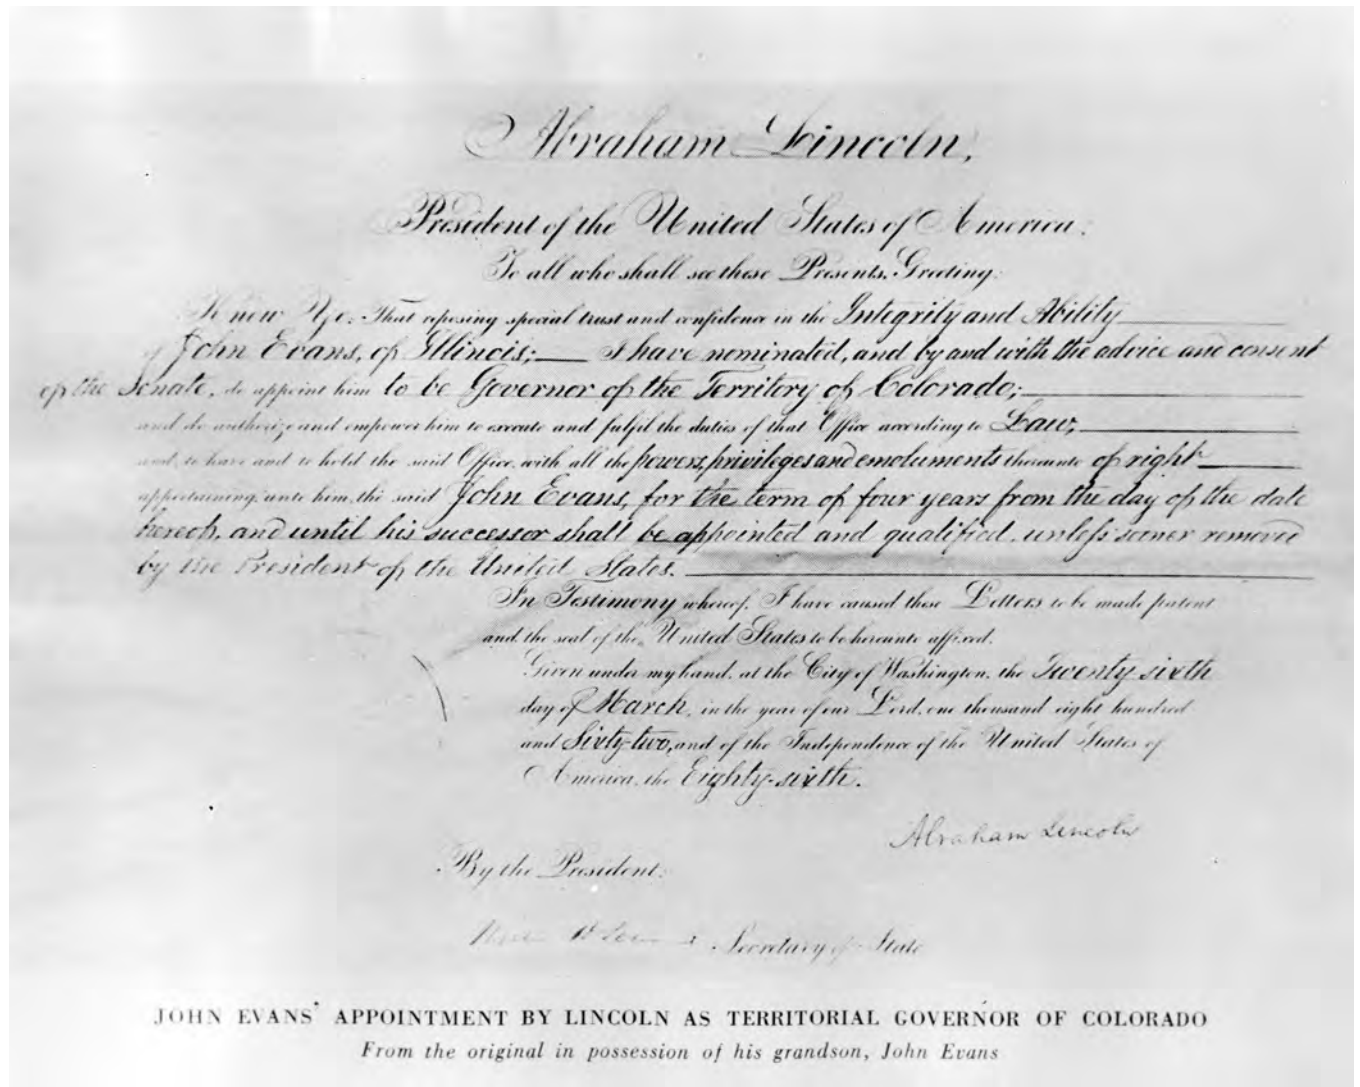 Abraham Lincoln,
President of the United States of America:
To all who shall see these Presents, Greeting:
Know Ye, That reposing special trust and confidence in the Integrity and Ability
of John Evans, of Illinois; I have nominated, and by and with the advice and consent
of the Senate, do appoint him to be Governor of the Territory of Colorado;
and do authorize and empower him to execute and fulfil the duties of that Office according to Law;
and to have and to hold the said Office, with all the powers, privileges and emoluments thereunto of right
appertaining, unto him, the said John Evans, for the term of four years from the day of the date
hereof, and until his successor shall be appointed and qualified, unless sooner removed
by the President of the United States.
In Testimony whereof, I have caused these Letters to be made patent
and the seal of the United States to be hereunto affixed.
Given under my hand, at the City of Washington, the Twenty-sixth
day of March, in the year of our Lord, one thousand eight hundred
and Sixty-two, and of the Independence of the United States of
America, the Eighty-sixth.
Abraham Lincoln
By the President:
Secretary of State
JOHN EVANS' APPOINTMENT BY LINCOLN AS TERRITORIAL GOVERNOR OF COLORADO
From the original in possession of his grandson, John Evans